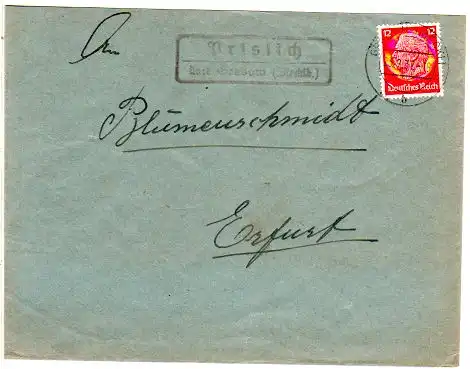 An
Prislich
über Grabow (Mecklb.)
12 12
Deutsches Reich
Blumenschmidt
Erfurt